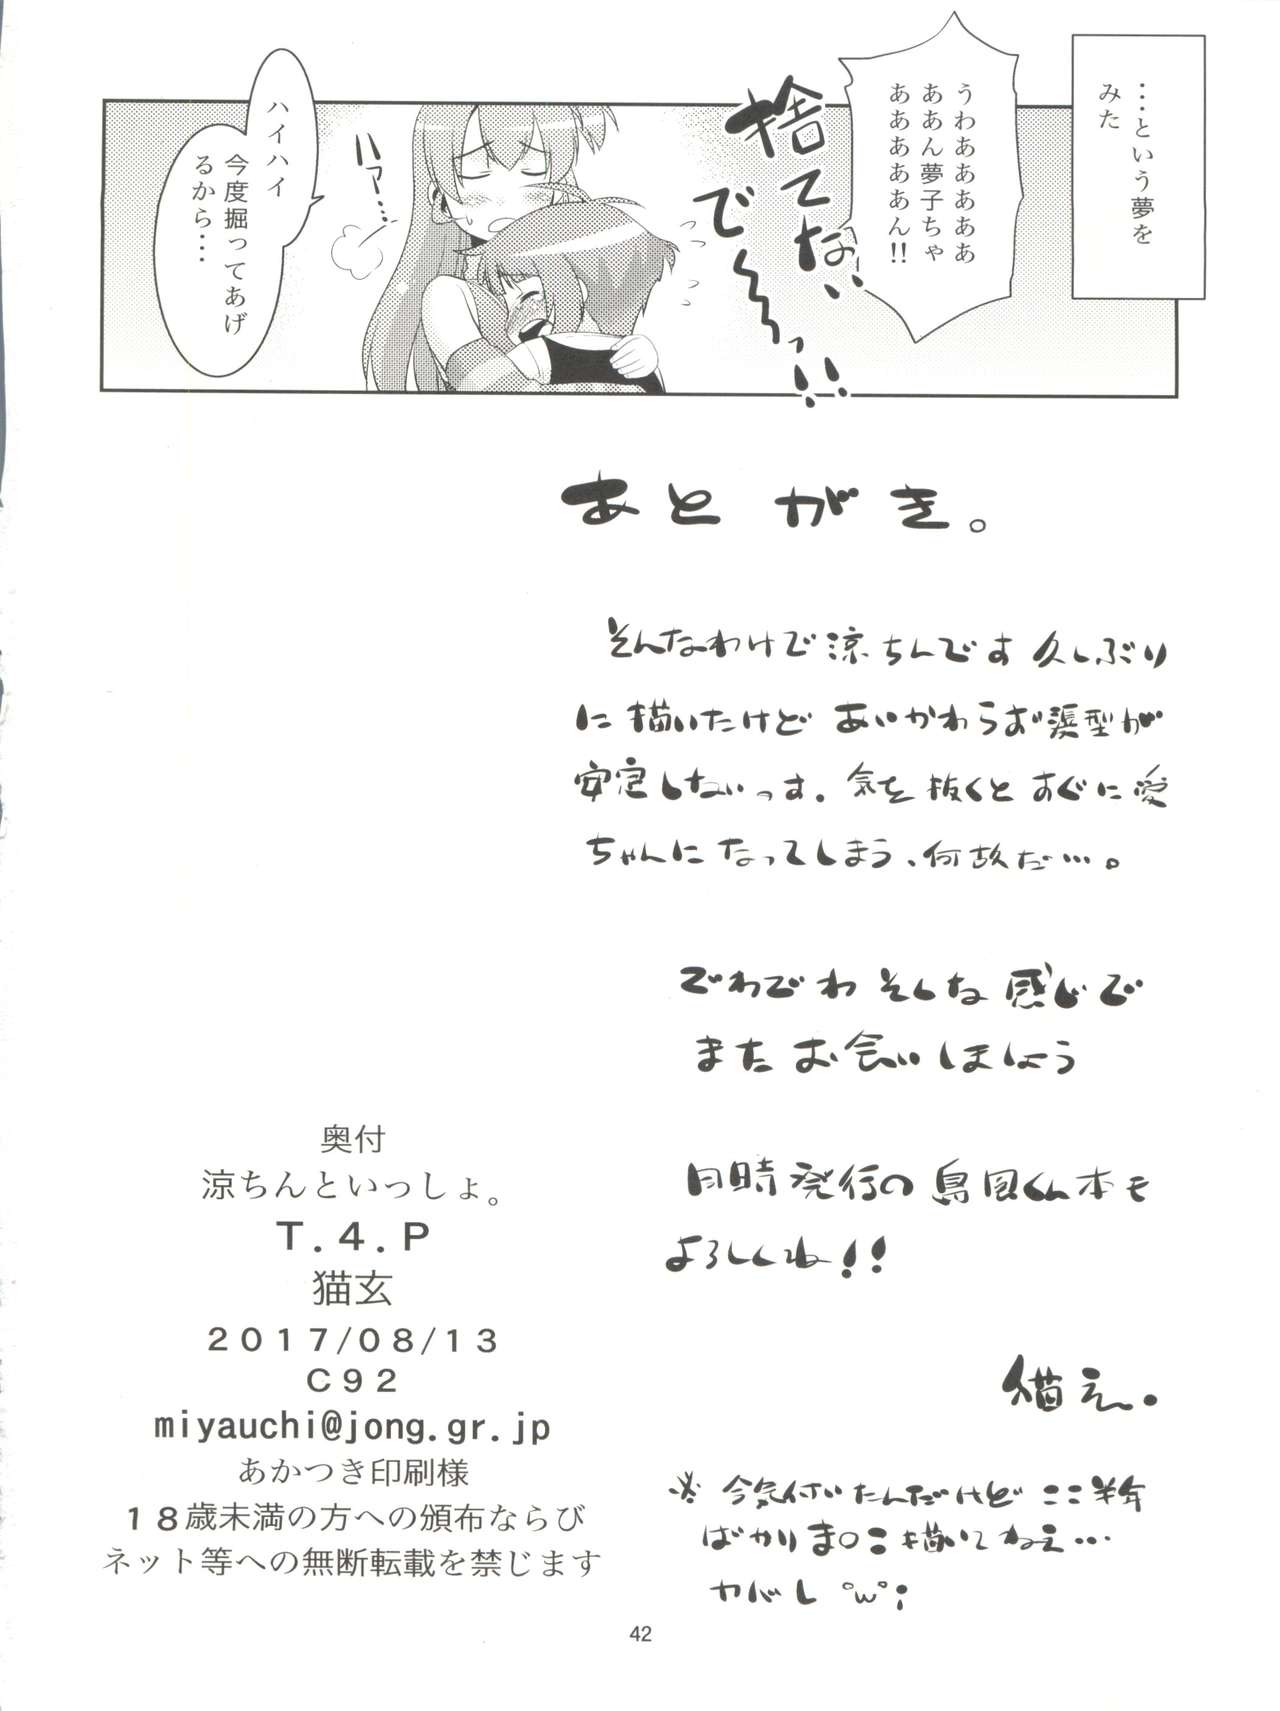 ・・・という夢を
みた
うわあああああ
ああん夢子ちゃ
あああああん!!
捨てない
で～～っ!!
ハァ・・・
ハイハイ
今度掘ってあげ
るから・・・
あとがき。
そんなわけで涼ちんです久しぶり
に描いたけどあいかわらず髪型が
安定しないっす。気を抜くとすぐに愛
ちゃんになってしまう、何故だ…。
でわでわそんな感じで
またお会いしましょう
同時発行の島風くん本も
よろしくね!!
猫玄。
※今気付いたんだけどここ半年
ばかりま○こを描いてねえ…
ヤバし °w°;
奥付
涼ちんといっしょ。
T.4.P
猫玄
2017/08/13
C92
miyauchi@jong.gr.jp
あかつき印刷様
18歳未満の方への頒布ならび
ネット等への無断転載を禁じます
42